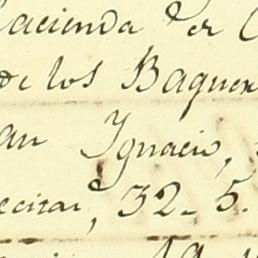 hacienda de
de los Baquer
an Ignacio,
ecitar, 32. 5.